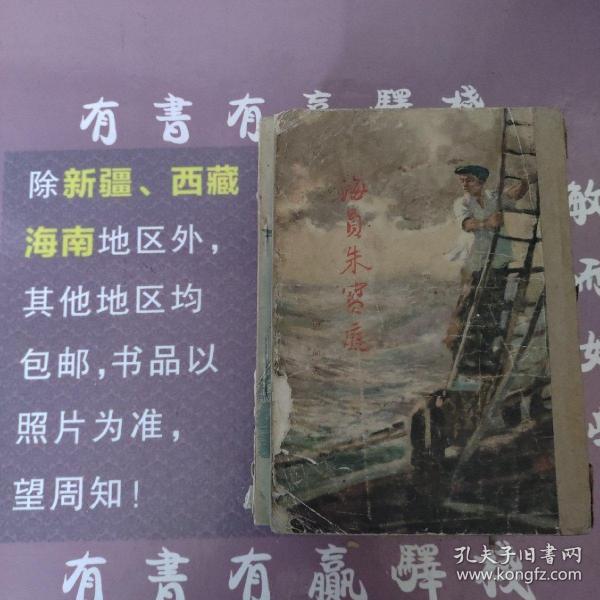 有書有贏驛棧
除新疆、西藏
海南地区外，
其他地区均
包邮，书品以
照片为准，
望周知！
海員朱寶庭
敏而好
有書有贏驛棧
孔夫子旧书网
www.kongfz.com